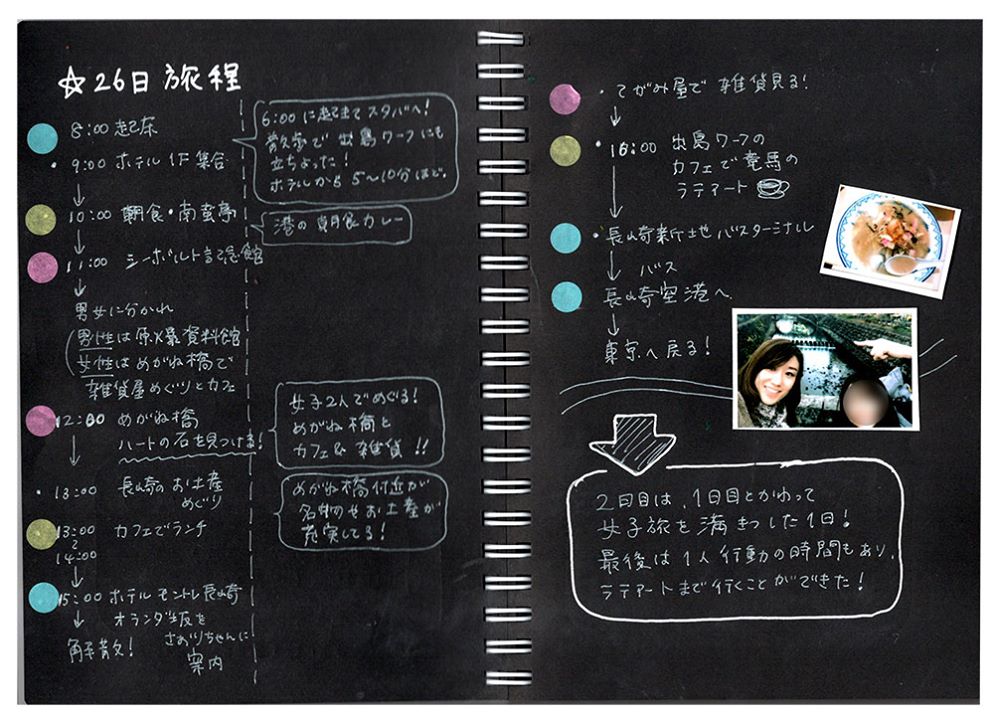 ☆26日 旅程
8:00 起床
・9:00 ホテル 1F 集合
↓
10:00 朝食・南蛮亭
↓
11:00 シーボルト記念館
↓
男女に分かれ
(男性は原爆資料館
女性はめがね橋で
雑貨屋めぐりとカフェ
12:00 めがね橋
ハートの石を見つける!
↓
・13:00 長崎のお土産
めぐり
13:00 カフェでランチ
〜
14:00
↓
15:00 ホテルモントレ長崎
↓ オランダ坂を
さおりちゃんに
解散! 案内
6:00に起きてスタバへ!
散歩で 出島ワーフにも
立ちよった!
ホテルから 5〜10分ほど。
港の朝食カレー
女子2人でめぐる!
めがね橋と
カフェ& 雑貨 !!
めがね橋付近が
お土産が
充実してる!
・てがみ屋で 雑貨見る!
↓
・16:00 出島ワーフの
カフェで竜馬の
ラテアート
↓
・長崎新地バスターミナル
↓ バス
長崎空港へ
↓
東京へ戻る!
2日目は、1日目とかわって
女子旅を満きつした1日!
最後は1人行動の時間もあり、
ラテアートまで行くことができた!